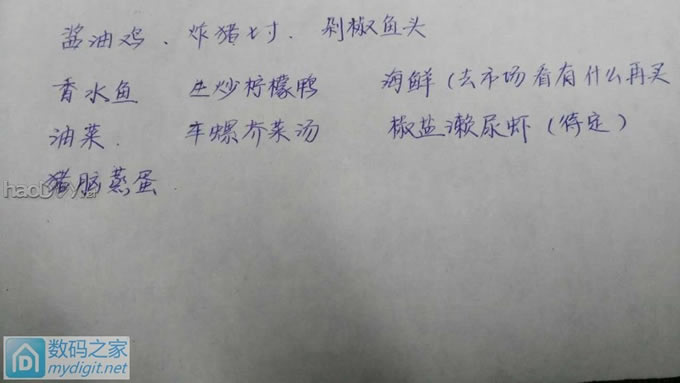 酱油鸡、炸猪七寸、剁椒鱼头
香水鱼 生炒柠檬鸭 海鲜(去市场看有什么再买
油菜. 车螺芥菜汤 椒盐濑尿虾(待定)
猪脑蒸蛋
数码之家
mydigit.net